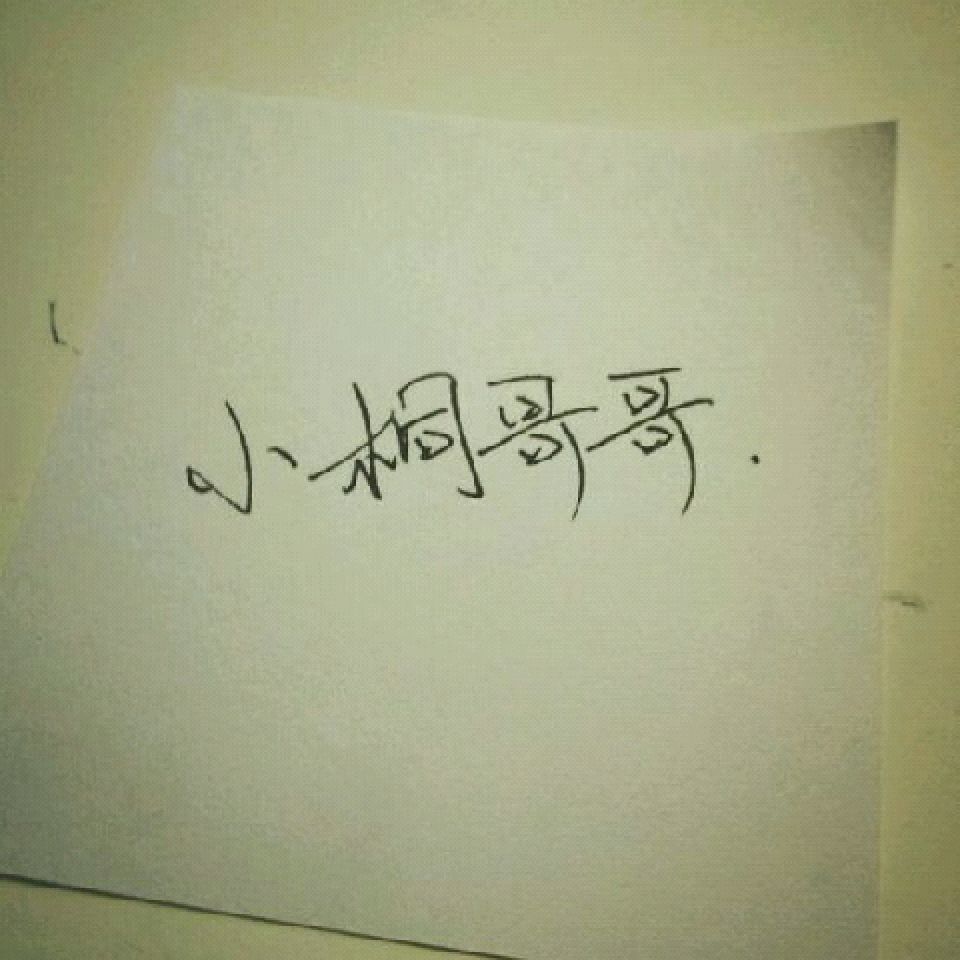 小桐哥哥.